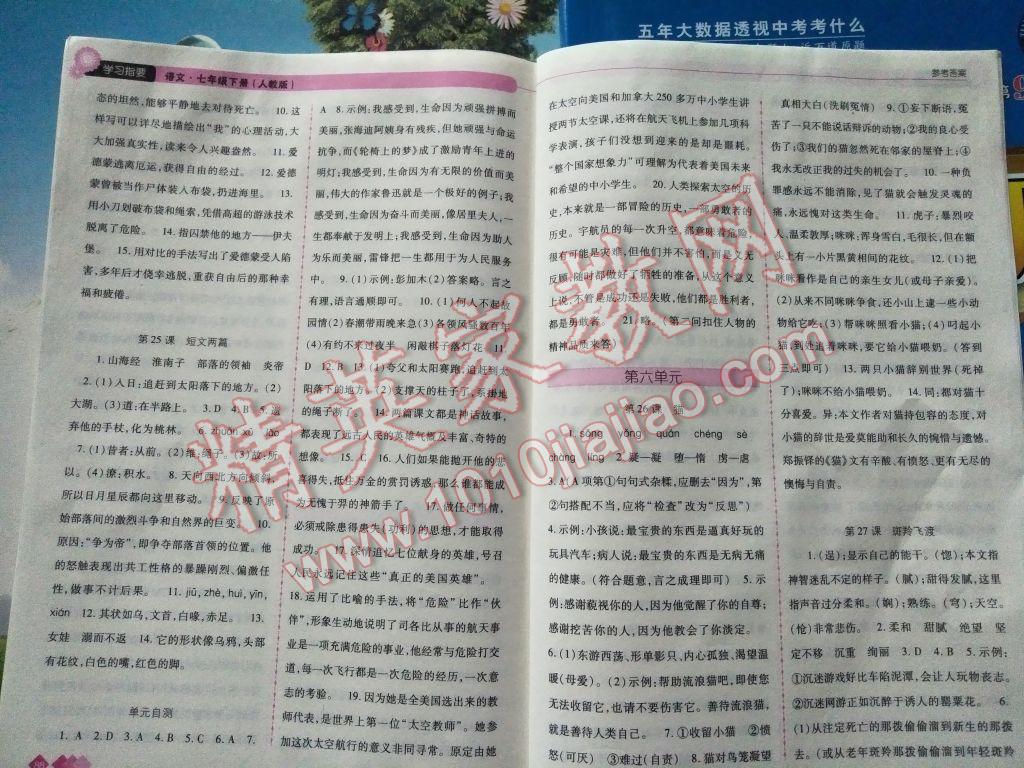 五年大数据透视中考考什么
学习指要
语文·七年级下册(人教版)
态的坦然,能够平静地去对待死亡。 10. 这
样写可以详尽地描绘出“我”的心理活动,大
大加强真实性,读来令人兴趣盎然。 11. 爱
德蒙逃离厄运,获得自由的经过。 12. 爱德
蒙曾被当作尸体装入布袋,扔进海里。 13.
用小刀划破布袋和绳索,凭借高超的游泳技术
脱离了危险。 14. 指囚禁他的地方——伊夫
堡。 15. 用对比的手法写出了爱德蒙受人陷
害,多年后才侥幸逃脱,重获自由后的那种幸
福和疲倦。
第25课 短文两篇
1. 山海经 淮南子 部落的领袖 炎帝
2. (1)人日;追赶到太阳落下的地方。(2)
大湖。(3)道;在半路上。 3. D 4. B 5. 遗
弃他的手杖,化为桃林。 6. zhuān xū lǎo
7. (1)昔者:从前。(2)维:绳子。(3)故:所
以。(4)潦:积水。 8. 天向西北方向倾斜,
所以日月星辰都向这里移动。 9. 反映了原
始部落间的激烈斗争和自然界的巨变。 10.
原因:“争为帝”,即争夺部落首领的位置。他
的怒触表现出共工性格的暴躁刚烈、偏激任
性,做事不计后果。 11. jiū, zhè, huì, yīn,
xián 12. 其状如乌,文首,白喙,赤足。 13.
女娃 溺而不返 14. 它的形状像乌鸦,头部
有花纹,白色的嘴,红色的脚。
单元自测
1. A 2. D 3. A 4. D 5. C 6. A 7.
A 8. 示例:我感受到,生命因为顽强拼搏而
美丽,张海迪阿姨身有残疾,但她顽强与命运
抗争,而《轮椅上的梦》成了激励青年上进的
明灯;我感受到,生命因为有无限的价值而美
丽,伟大的作家鲁迅就是一个很好的例子;我
感受到,生命因为奋斗而美丽,像居里夫人,一
生都奉献于发明上;我感受到,生命因为助人
为乐而美丽,雷锋把一生都用于为人民服务
中。 9. (1)示例:彭加木(2)答案略。言之
有理,语言通顺即可。 10. (1)何人不起故
园情(2)春潮带雨晚来急(3)各领风骚数百年
(4)有约不来过夜半 闲敲棋子落灯花 11.
D 12. B 13. (1)夸父和太阳赛跑,追赶到太
阳落下的地方。(2)支撑天的柱子折了,系挂地
的绳子断了。 14. 两篇课文都是神话故事,
都表现了远古人民的英雄气概及丰富、奇特的
想像。 15. C 16. 人们如果能抛开他的悲
喜得失,抵住万金的赏罚诱惑,那么谁都能成
为无愧于羿的神箭手了。 17. 做任何事情,
必须戒除患得患失(功利)的思想,才能取得
成功。 17. 深情追忆七位献身的英雄,号召
人民永远记住这些“真正的美国英雄”。
18. 运用了比喻的手法,将“危险”比作“伙
伴”,形象生动地说明了司各比从事的航天事
业是一项充满危险的事业,他经常与危险打交
道,每一次飞行都是一次危险的经历,一次意
志的考验。 19. 因为她是全美国选出来的教
师代表,是世界上第一位“太空教师”。她参
加这次太空航行的意义非同寻常。原定由她
参考答案
在太空向美国和加拿大250多万中小学生讲
授两节太空课,还将在航天飞机上参加几项科
学表演,孩子们没想到迎来的是却是噩耗。
“整个国家想象力”可理解为代表着美国未来
和希望的中小学生。 20. 人类探索太空的历
史,本来就是一部冒险的历史,一部勇敢者的
历史。宇航员的每一次升空,都意味着危险,
很有可能是灾难,但他们并不害怕,而是义无
反顾,随时都做好了牺牲的准备,从这个意义
上说,不管是成功还是失败,他们都是胜利者,
都是勇敢者。 21. 略。(第二问扣住人物的
精神品质来答)
第六单元
第26课 猫
1. sǒng yōng quán chéng sè
chàng líng 2. 凝—凝 堕—惰 虏—虐
3. A(A项第①句句式杂糅,应删去“因为”,第
②句搭配不当,应将“检查”改为“反思”)
4. 示例:小孩说:最宝贵的东西是逼真好玩的
玩具汽车;病人说:最宝贵的东西是无病无痛
的健康。(符合题意,言之成理即可) 5. 示
例:感谢藐视你的人,因为他觉醒了你的自尊;
感谢挖苦你的人,因为他教会了你淡定。
6. (1)东游西荡、形单影只、内心孤独、渴望温
暖(母爱)。(2)示例:帮助流浪猫吧,即使您
无法收留它,也请不要伤害它。善待流浪猫,
就是善待人类自己。 7. ①收留小猫 ②愤
怒(可厌) ③难过(自责) 8. 猫对鸟笼凝望
真相大白(洗刷冤情) 9. ①妄下断语,冤
苦了一只不能说话辩诉的动物;②我的良心受
伤了;③我们的猫忽然死在邻家的屋脊上;④
我永无改正我的过失的机会了。 10. 一种负
罪感永远不能消除,见了猫就会触发灵魂的
痛,永远愧对这类生命。 11. 虎子:暴烈咬
人、温柔敦厚;咪咪:浑身雪白,毛很长,但在额
头上有一小片黑黄相间的花纹。 12. (1)把
咪咪看作是自己的亲生女儿(或母子亲爱)。
(2)从来不同咪咪争食,还小山上逮一些小动
物给它吃;(3)帮咪咪照看小猫;(4)叼起小
猫,到处追着咪咪,要它给小猫喂奶。(答到
三点即可) 13. 两只小猫辞别世界(死掉
了);咪咪不给小猫喂奶。 14. 同:都对猫十
分喜爱。异:本文作者对猫持包容的态度,对
小猫的辞世是爱莫能助和长久的惋惜与遗憾。
郑振铎的《猫》文有辛酸、有愤怒、更有无尽的
懊悔与自责。
第27课 斑羚飞渡
1. (逞);显示自己的能干。(惚);本文指
神智迷乱不定的样子。(腻);甜得发腻,这里
指声音过分柔和。(娴);熟练。(穹);天空。
(怆)非常悲伤。 2. 柔和 甜腻 绝望 坚
定不移 沉重 绚丽 3. D 4. B 5. 示例:
①沉迷游戏好比车陷泥潭,会让人玩物丧志。
②沉迷网游正如沉醉于诱人的罂粟花。 6.
(1)从注定死亡的那拨偷偷溜到新生的那拨
去。(或从老年斑羚那拨偷偷溜到年轻斑羚
精英家教网
www.1010jiajiao.com